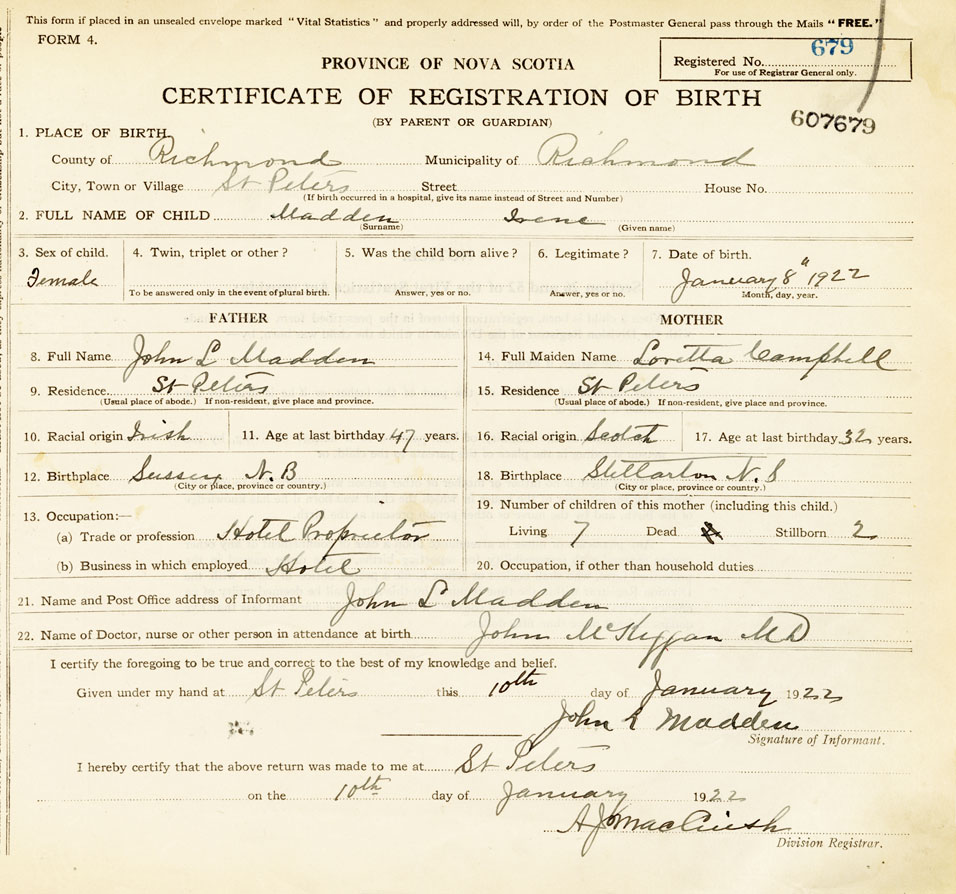 This form if placed in an unsealed envelope marked "Vital Statistics" and properly addressed will, by order of the Postmaster General pass through the Mails "FREE."
FORM 4.
Registered No. 679
For use of Registrar General only.
PROVINCE OF NOVA SCOTIA
CERTIFICATE OF REGISTRATION OF BIRTH
(BY PARENT OR GUARDIAN)
607679
1. PLACE OF BIRTH
County of Richmond Municipality of Richmond
City, Town or Village St Peters Street House No.
(If birth occurred in a hospital, give its name instead of Street and Number)
2. FULL NAME OF CHILD Madden Irene
(Surname) (Given name)
3. Sex of child. 4. Twin, triplet or other? 5. Was the child born alive? 6. Legitimate? 7. Date of birth.
Female January 8" 1922
To be answered only in the event of plural birth. Answer, yes or no. Answer, yes or no. Month, day, year.
FATHER MOTHER
8. Full Name John L Madden 14. Full Maiden Name Loretta Campbell
9. Residence St Peters 15. Residence St Peters
(Usual place of abode.) If non-resident, give place and province. (Usual place of abode.) If non-resident, give place and province.
10. Racial origin Irish 11. Age at last birthday 47 years. 16. Racial origin Scotch 17. Age at last birthday 32 years.
12. Birthplace Sussex N.B 18. Birthplace Stellarton N.S
(City or place, province or country.) (City or place, province or country.)
13. Occupation:— 19. Number of children of this mother (including this child.)
(a) Trade or profession Hotel Proprietor Living 7 Dead Stillborn 2
(b) Business in which employed Hotel 20. Occupation, if other than household duties
21. Name and Post Office address of Informant John L Madden
22. Name of Doctor, nurse or other person in attendance at birth John McKiggan MD
I certify the foregoing to be true and correct to the best of my knowledge and belief.
Given under my hand at St Peters this 10th day of January 1922
John L Madden
Signature of Informant.
I hereby certify that the above return was made to me at St Peters
on the 10th day of January 1922
A J
Division Registrar.